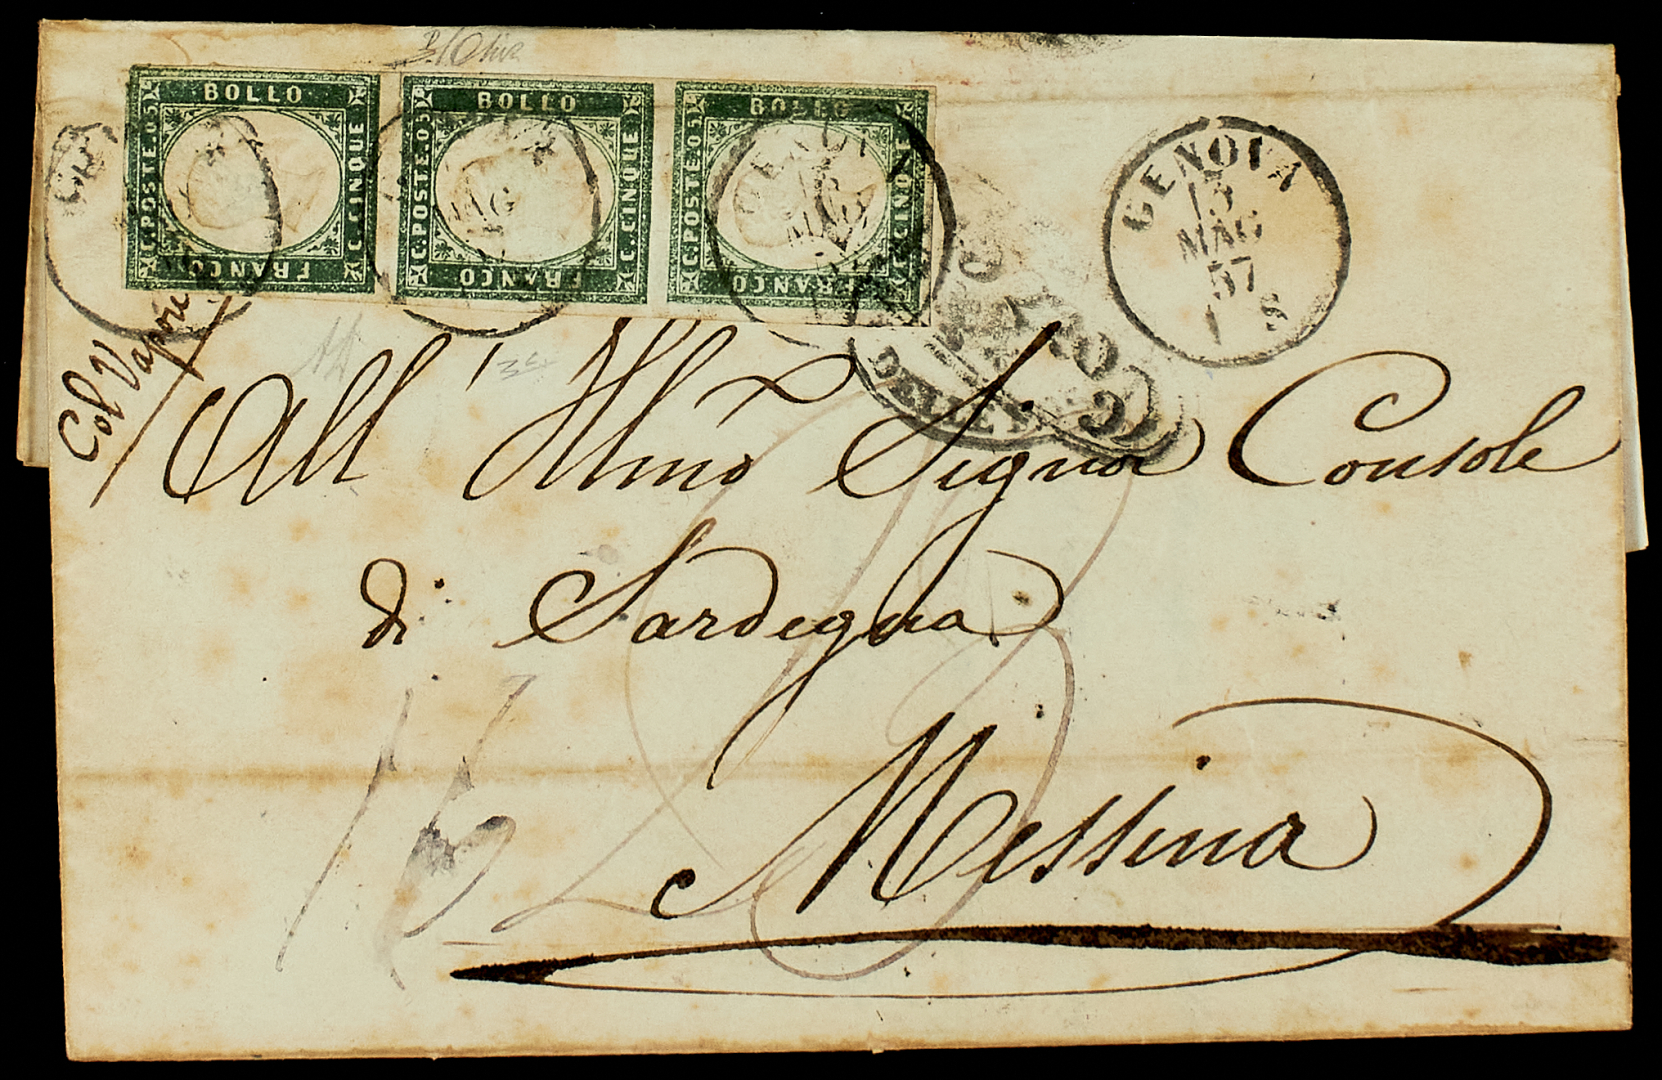 BOLLO
C. POSTE. 05
C. CINQUE
FRANCO
BOLLO
C. POSTE. 05
C. CINQUE
FRANCO
BOLLO
C. POSTE. 05
C. CINQUE
FRANCO
GENOVA
13
MAG
57
1 S
GENOVA
MAG
DELLE
Col Vapore
All' Illmo Signor Console
di Sardegna
Messina
16